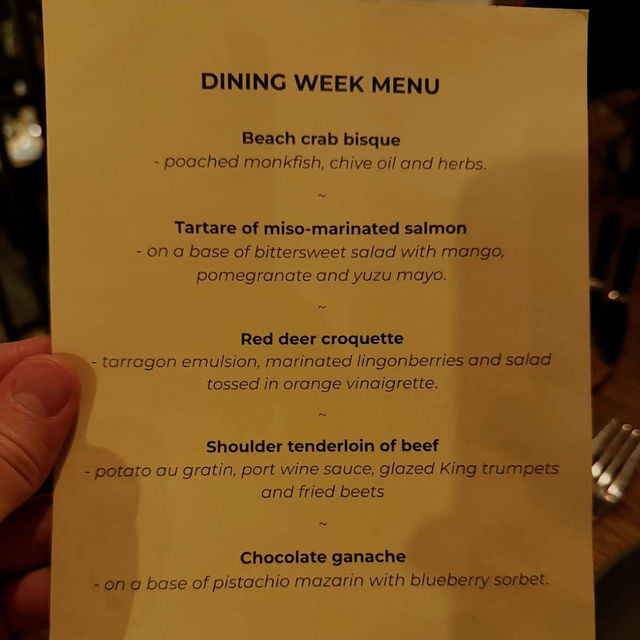 DINING WEEK MENU
Beach crab bisque
- poached monkfish, chive oil and herbs.
~
Tartare of miso-marinated salmon
- on a base of bittersweet salad with mango,
pomegranate and yuzu mayo.
~
Red deer croquette
- tarragon emulsion, marinated lingonberries and salad
tossed in orange vinaigrette.
~
Shoulder tenderloin of beef
- potato au gratin, port wine sauce, glazed King trumpets
and fried beets
~
Chocolate ganache
- on a base of pistachio mazarin with blueberry sorbet.